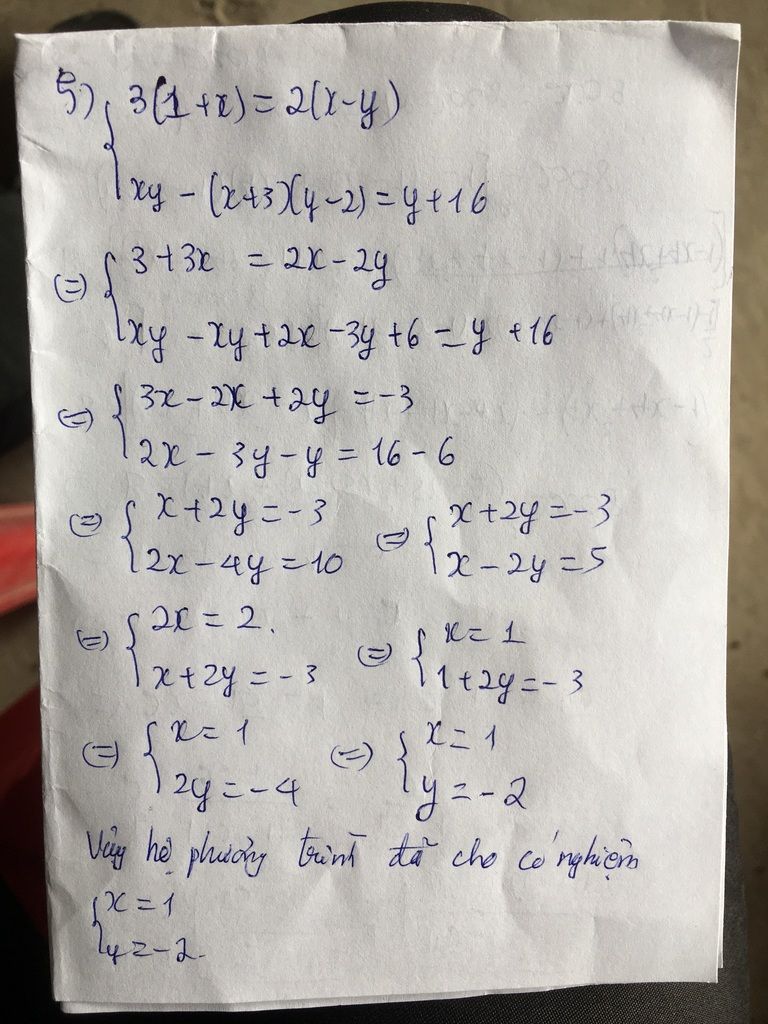 5) { 3(1+x) = 2(x-y)
xy - (x+3)(y-2) = y+16
(=) { 3+3x = 2x-2y
xy - xy + 2x - 3y + 6 = y + 16
(=) { 3x - 2x + 2y = -3
2x - 3y - y = 16 - 6
(=) { x+2y = -3
2x - 4y = 10
(=) { x+2y = -3
x - 2y = 5
(=) { 2x = 2.
x+2y = -3
(=) { x = 1
1+2y = -3
(=) { x = 1
2y = -4
(=) { x = 1
y = -2
Vậy hệ phương trình đã cho có nghiệm
{ x = 1
y = -2.